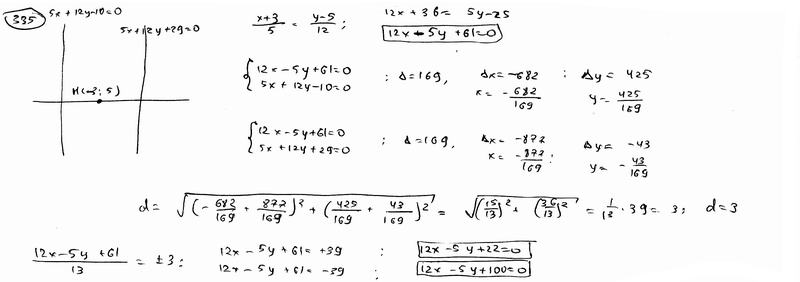 335
5x+12y-10=0
5x+12y+29=0
M(-3; 5)
x+3/5 = y-5/12 ;
12x+36= 5y-25
12x-5y+61=0
{12x-5y+61=0
5x+12y-10=0
; Δ=169, Δx=-682 ; Δy=425
x= -682/169 y= 425/169
{12x-5y+61=0
5x+12y+29=0
; Δ=169, Δx=-877 Δy= -43
x= -877/169; y= -43/169
d= √(-682/169 + 877/169)² + (425/169 + 43/169)² = √(15/13)² + (36/13)² = 1/13 · 39= 3; d=3
12x-5y+61/13 = ±3;
12x-5y+61= +39 ; 12x-5y+22=0
12x-5y+61= -39 ; 12x-5y+100=0